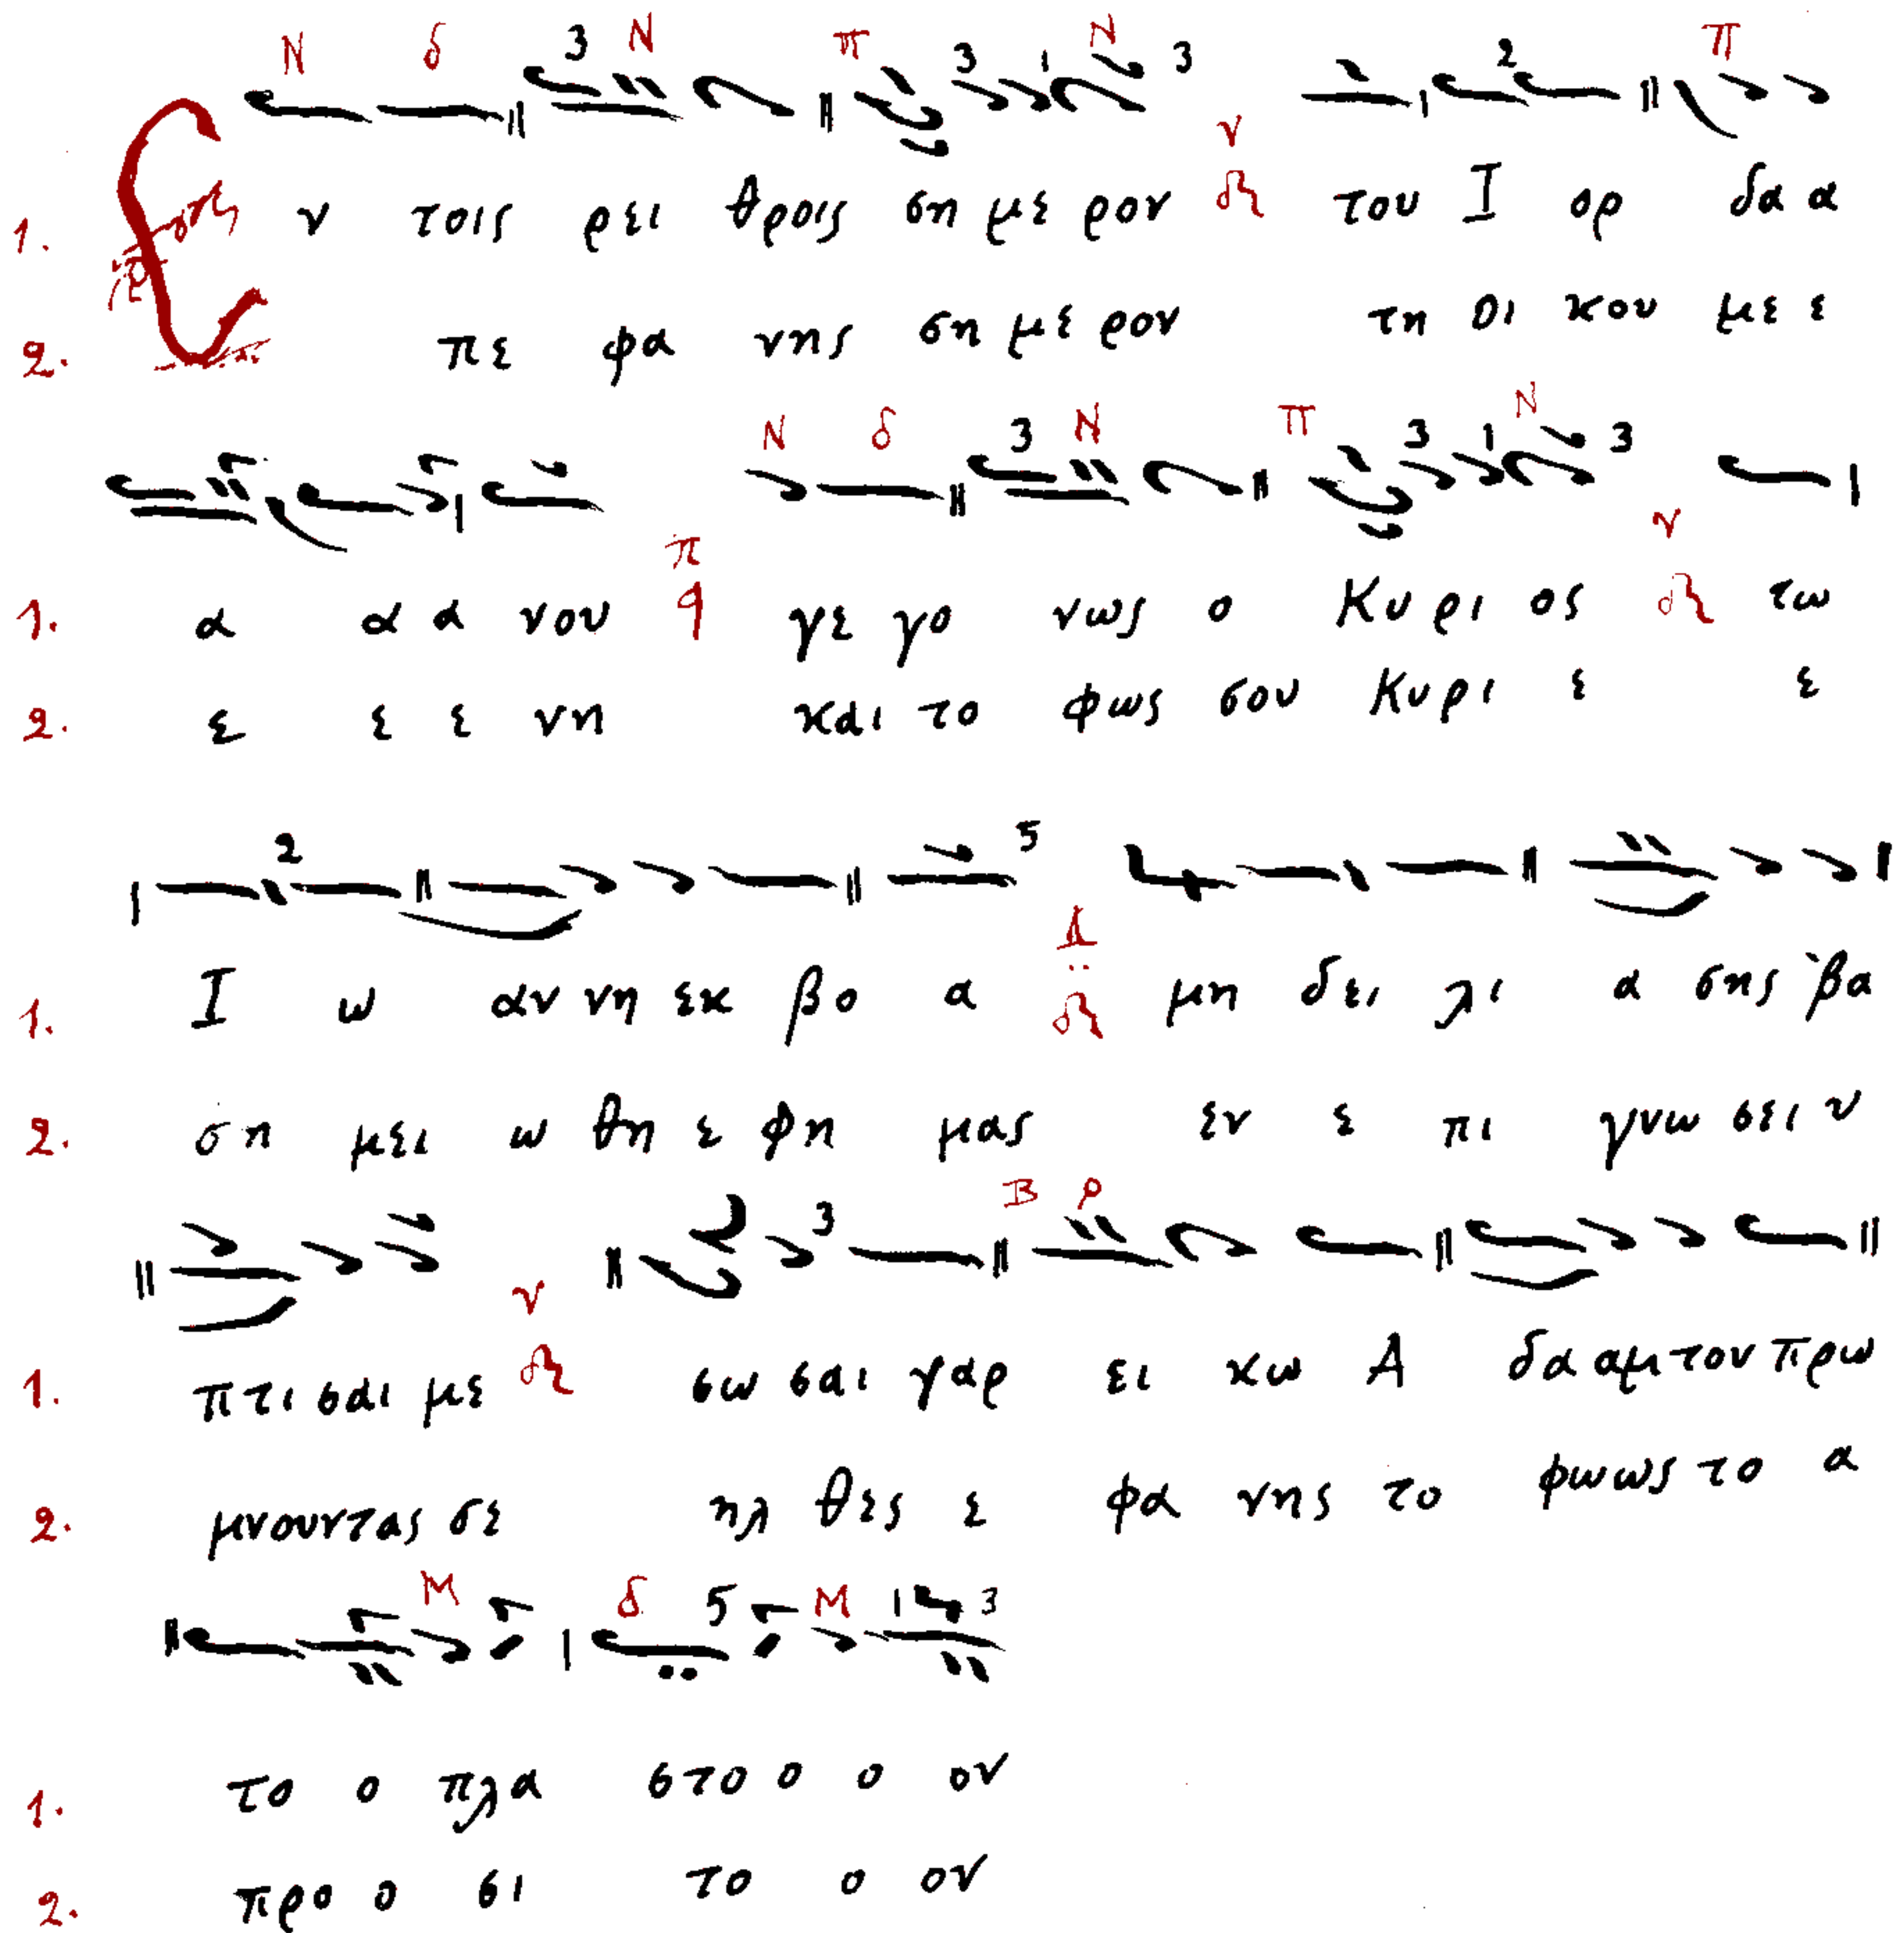 Ν δ 3 Ν π 3 1 Ν 3 2 π
1. Ε ν τοις ρει θροις ση με ρον ν του Ι ορ δα α
2. πε φα νης ση με ρον τη οι κου με ε
Ν δ 3 Ν π 3 1 Ν 3
1. α α α νου π q γε γο νως ο Κυ ρι ος ν τω
2. ε ε ε νη και το φως σου Κυ ρι ε ε
2 5
1. Ι ω αν νη εκ βο α Δ μη δει λι α σης βα
2. ση μει ω θη ε φη μας εν ε πι γνω σει υ
3 Β ρ
1. πτι σαι με ν σω σαι γαρ ει κω Α δα αμ τον πρω
2. μνουντας σε ηλ θες ε φα νης το φωως το α
Μ δ 5 Μ 1 3
1. το ο πλα στο ο ο ον
2. προ ο σι το ο ον